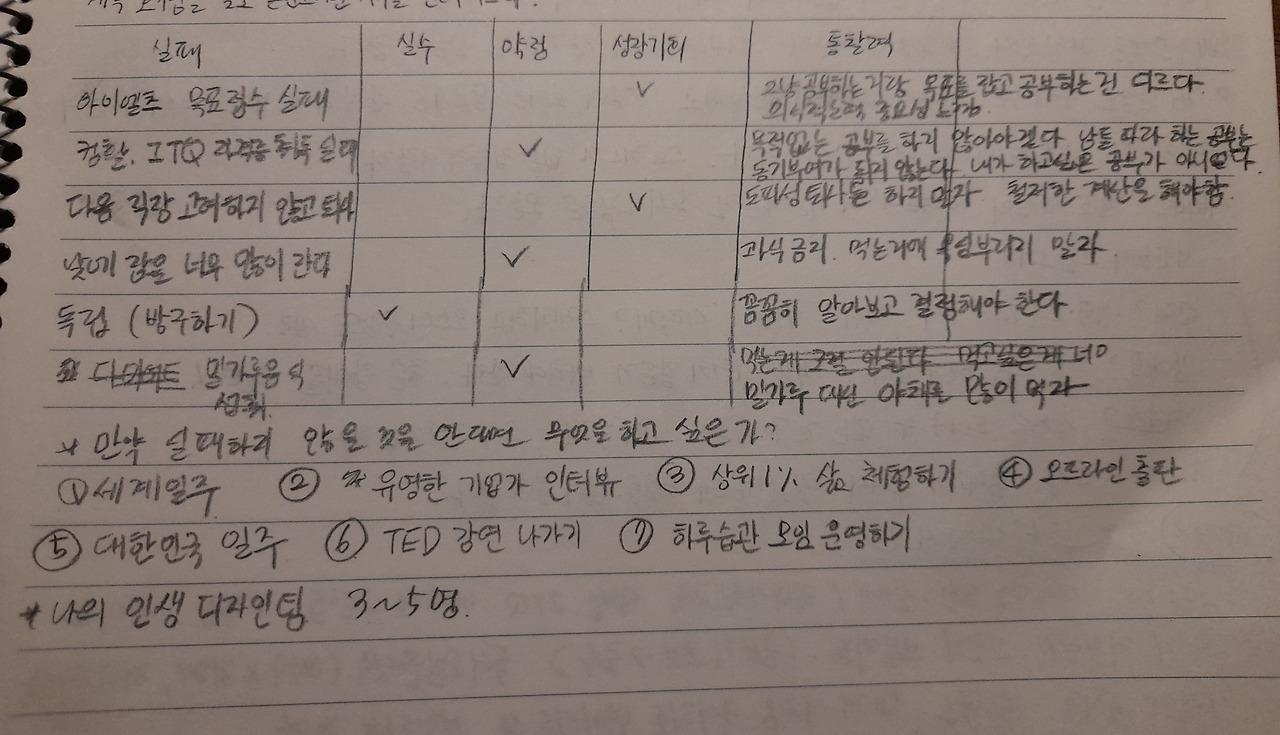 실패 실수 약점 성장기회 통찰력
아이엘츠 목표점수 실패 ✓ 그냥 공부하는거랑 목표를 잡고 공부하는건 다르다.
의식적노력 중요성 느낌
컴활, ITQ 자격증 취득 실패 ✓ 목적없는 공부를 하지 않아야겠다. 남들 따라 하는 공부는
동기부여가 되지 않는다. 내가 하고싶은 공부가 아니었다.
다음 직장 고려하지 않고 퇴사 ✓ 도피성 퇴사를 하지 말자 철저한 계산을 해야함.
낮에 잠을 너무 많이 잔다 ✓ 과식금지. 먹는거에 욕심부리지 말자
독립 (방구하기) ✓ 꼼꼼히 알아보고 결정해야 한다
다이어트 밀가루음식 ✓ 먹는게 조절 안된다 먹고싶은게 너무
섭취. 밀가루 대신 야채를 많이 먹자
* 만약 실패하지 않을 것을 안다면 무엇을 하고 싶은가?
① 세계일주 ② 유명한 기업가 인터뷰 ③ 상위1% 삶 체험하기 ④ 오프라인 출판
⑤ 대한민국 일주 ⑥ TED 강연 나가기 ⑦ 하루습관 모임 운영하기
* 나의 인생 디자인팀 3~5명.